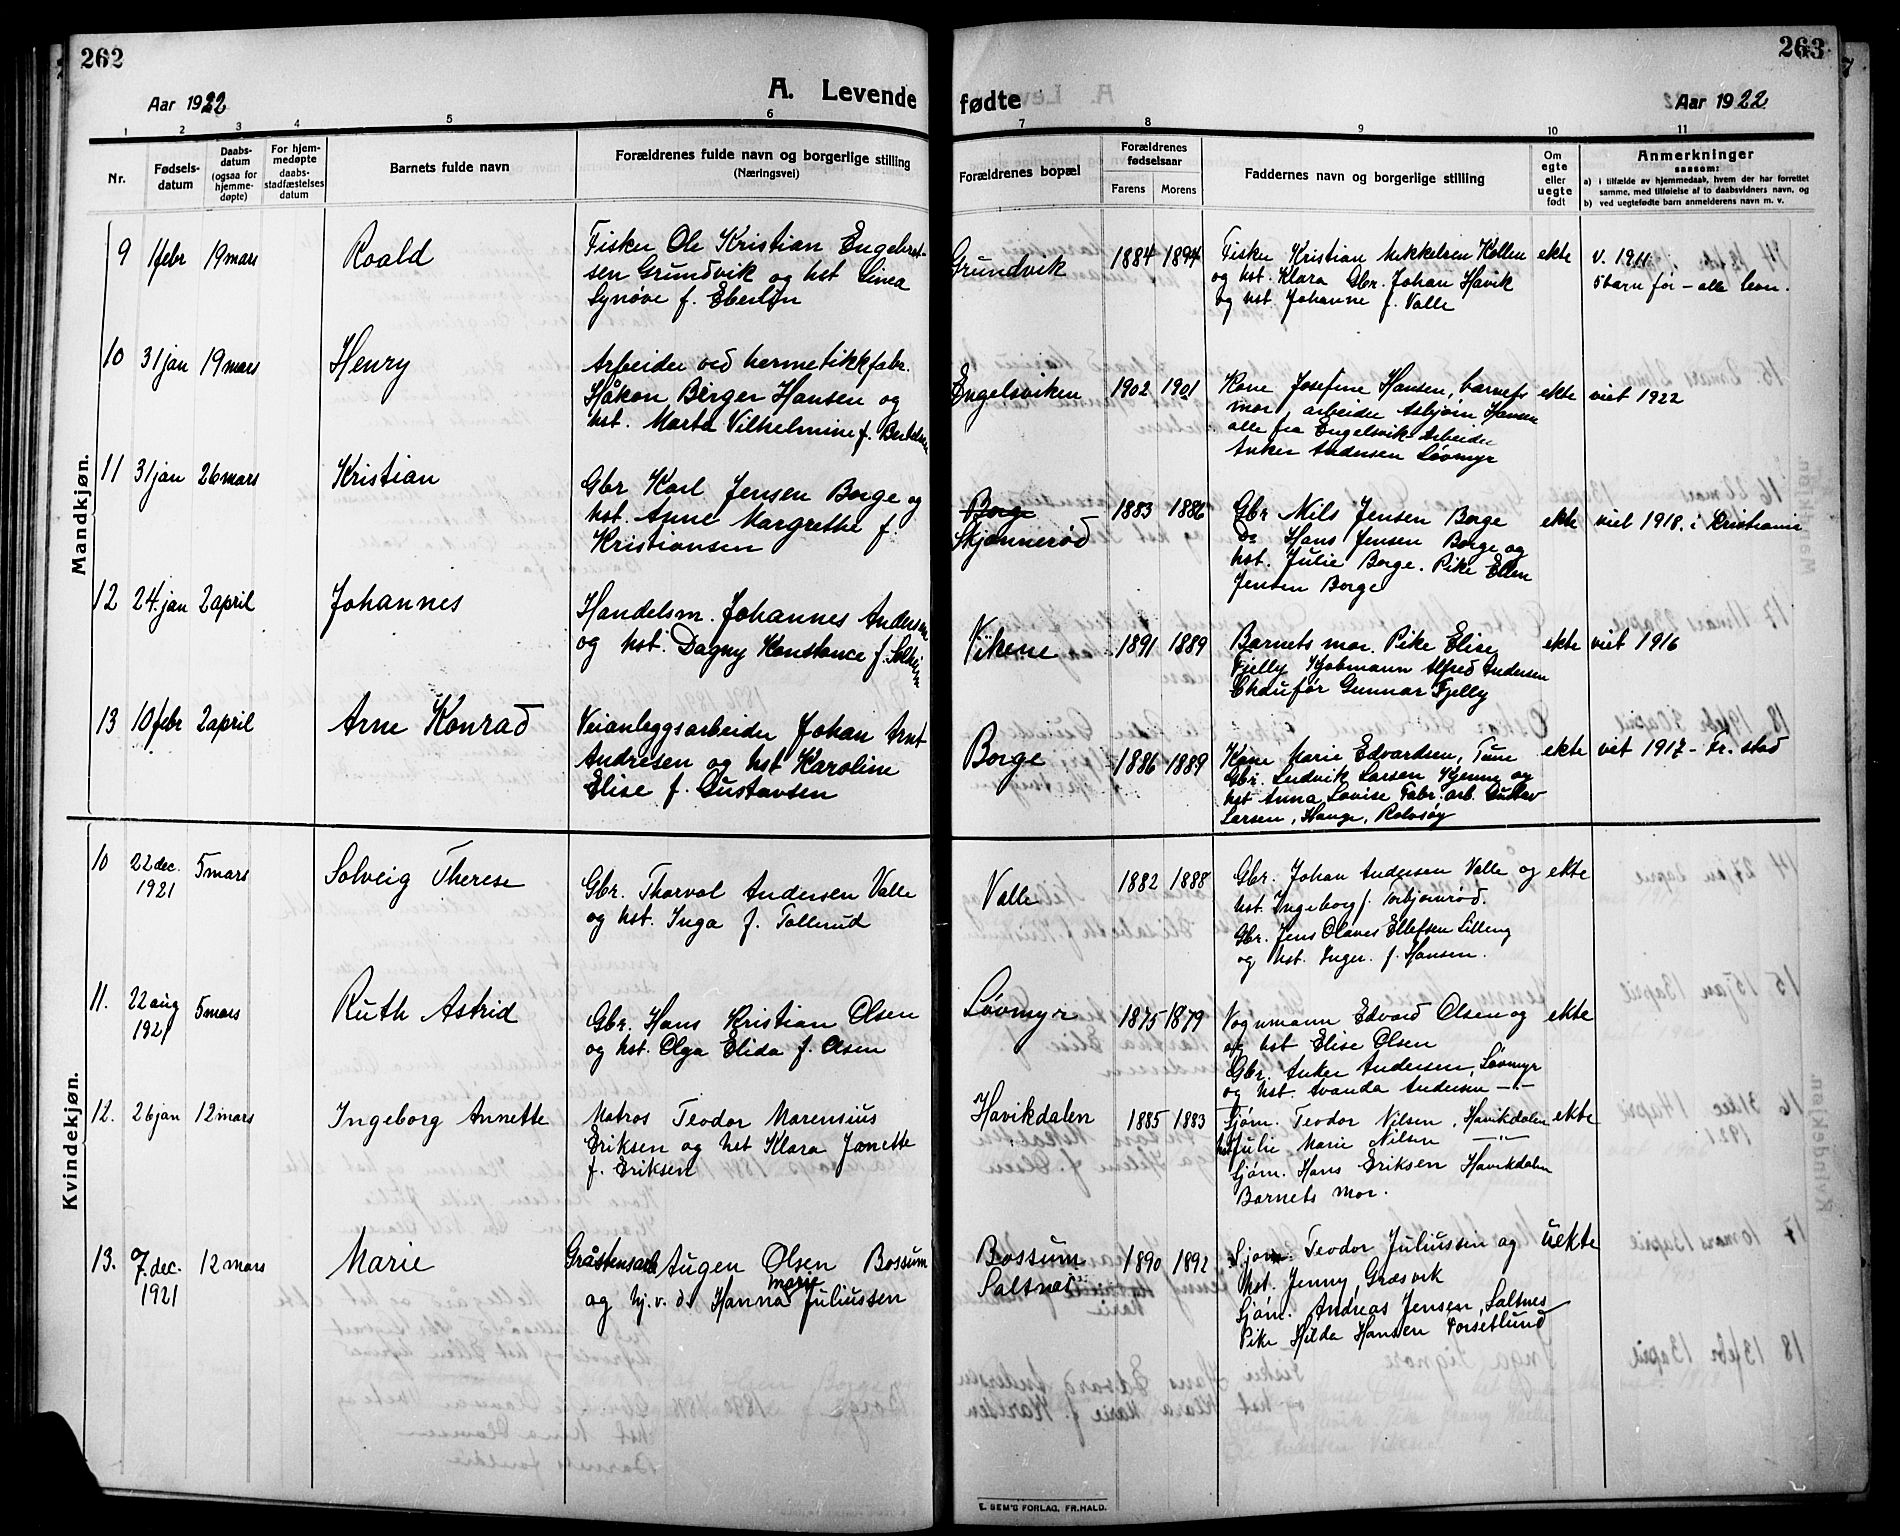 262
263
Aar 1922
A. Levende
fødte
Aar 1922
1 2 3 4 5 6 7 8 9 10 11
Nr.
Fødsels-
datum
Daabs-
datum
(ogsaa for
hjemme-
døpte)
For hjem-
medøpte
daabs-
stadfæstelses
datum
Barnets fulde navn
Forældrenes fulde navn og borgerlige stilling
(Næringsvei)
Forældrenes bopæl
Forældrenes
fødselsaar
Farens Morens
Faddernes navn og borgerlige stilling
Om
egte
eller
uegte
født
Anmerkninger
saasom:
a) i tilfælde av hjemmedaab, hvem der har forrettet
samme, med tilføielse af to daabsvidners navn, og
b) ved uegtefødte barn anmelderens navn m. v.
Mandkjøn.
9 1 febr 19 mars Roald
Fisker Ole Kristian Engebret-
sen Grundvik og hst Linea
Synøve f. Eberlin
Grundvik 1884 1894
Fisker Kristian Mikkelsen Kollen
og hst. Klara Gbr. Johan Havik
og hst. Johanne f. Valle
ekte
v. 1911
5 barn før – alle lever.
10 31 jan 19 mars Henry
Arbeider ved hermetikkfabr.
Håkon Birger Hansen og
hst. Marta Vilhelmine f. Bertelsen
Engelsviken 1902 1901
Kone Josefine Hansen, barnefr
mor, arbeider Asbjørn Hansen
alle fra Engelsvik Arbeider
Anker Andersen Løvmyr
ekte viet 1922
11 31 jan 26 mars Kristian
Gbr Karl Jensen Borge og
hst. Anne Margrethe f.
Kristiansen
Borge
Skjønnerød 1883 1886
Gbr Nils Jensen Borge
Do Hans Jensen Borge og
hst. Julie Borge. Pike Ellen
Jensen Borge
ekte viet 1918 i Kristiania
12 24. jan 2 april Johannes
Handelsm. Johannes Andersen
og hst. Dagny Konstance f.
Vikene 1891 1889
Barnets mor. Pike Elise
Fjelly Kjøbmann Alfred Andersen
Chauffør Gunnar Fjelly
ekte viet 1916
13 10 febr 2 april Arne Konrad
Veianleggsarbeider Johan Arnt
Andresen og hst Karoline
Elise f. Gustavsen
Borge 1886 1889
Kone Marie Edvardsen, Tune
Gbr. Ludvik Larsen Kjenne og
hst Anna Lovise Fabr. arb. Gustav
Larsen, Hauge, Rolvsøy
ekte viet 1917 – Fr. stad
Kvindekjøn.
10 22 dec. 5 mars Solveig Therese
1921
Gbr. Thorval Andersen Valle
og hst. Inga f. Tollerud
Valle 1882 1888
Gbr. Johan Andersen Valle og
hst. Ingeborg f. Torbjørnrød.
Gbr. Jens Olaves Ellefsen Lilleng
og hst. Inger f. Hansen.
ekte
11. 22 aug 5 mars Ruth Astrid
1921
Gbr. Hans Kristian Olsen
og hst. Olga Elida f. Olsen
Løvmyr 1875 1879
Vognmann Edvard Olsen og
og hst Elise Olsen
Gbr. Anker Andersen, Løvmyr
og hst. Avanda Andersen –"–
ekte
12. 26 jan 12 mars Ingeborg Annette
Matros Teodor Marensius
Eriksen og hst Klara Janette
f. Eriksen
Havikdalen 1885 1883
Sjøm. Teodor Nilsen, Havikdalen
hst Julie Marie Nilsen –"–
Sjøm. Hans Eriksen Havikdalen
Barnets mor.
ekte
13. 7. dec. 12 mars Marie
1921
Gråstensarb Augen Olsen Bossum
og hj. v. d. Hanna Marie Juliussen
Bossum
Saltnes 1890 1892
Sjøm. Teodor Juliussen og
hst. Jenny, Græsvik
Sjøm. Andreas Jensen, Saltnes
Pike Hilda Hansen Torsetlund
uekte
E. SEM'S FORLAG, FR.HALD.